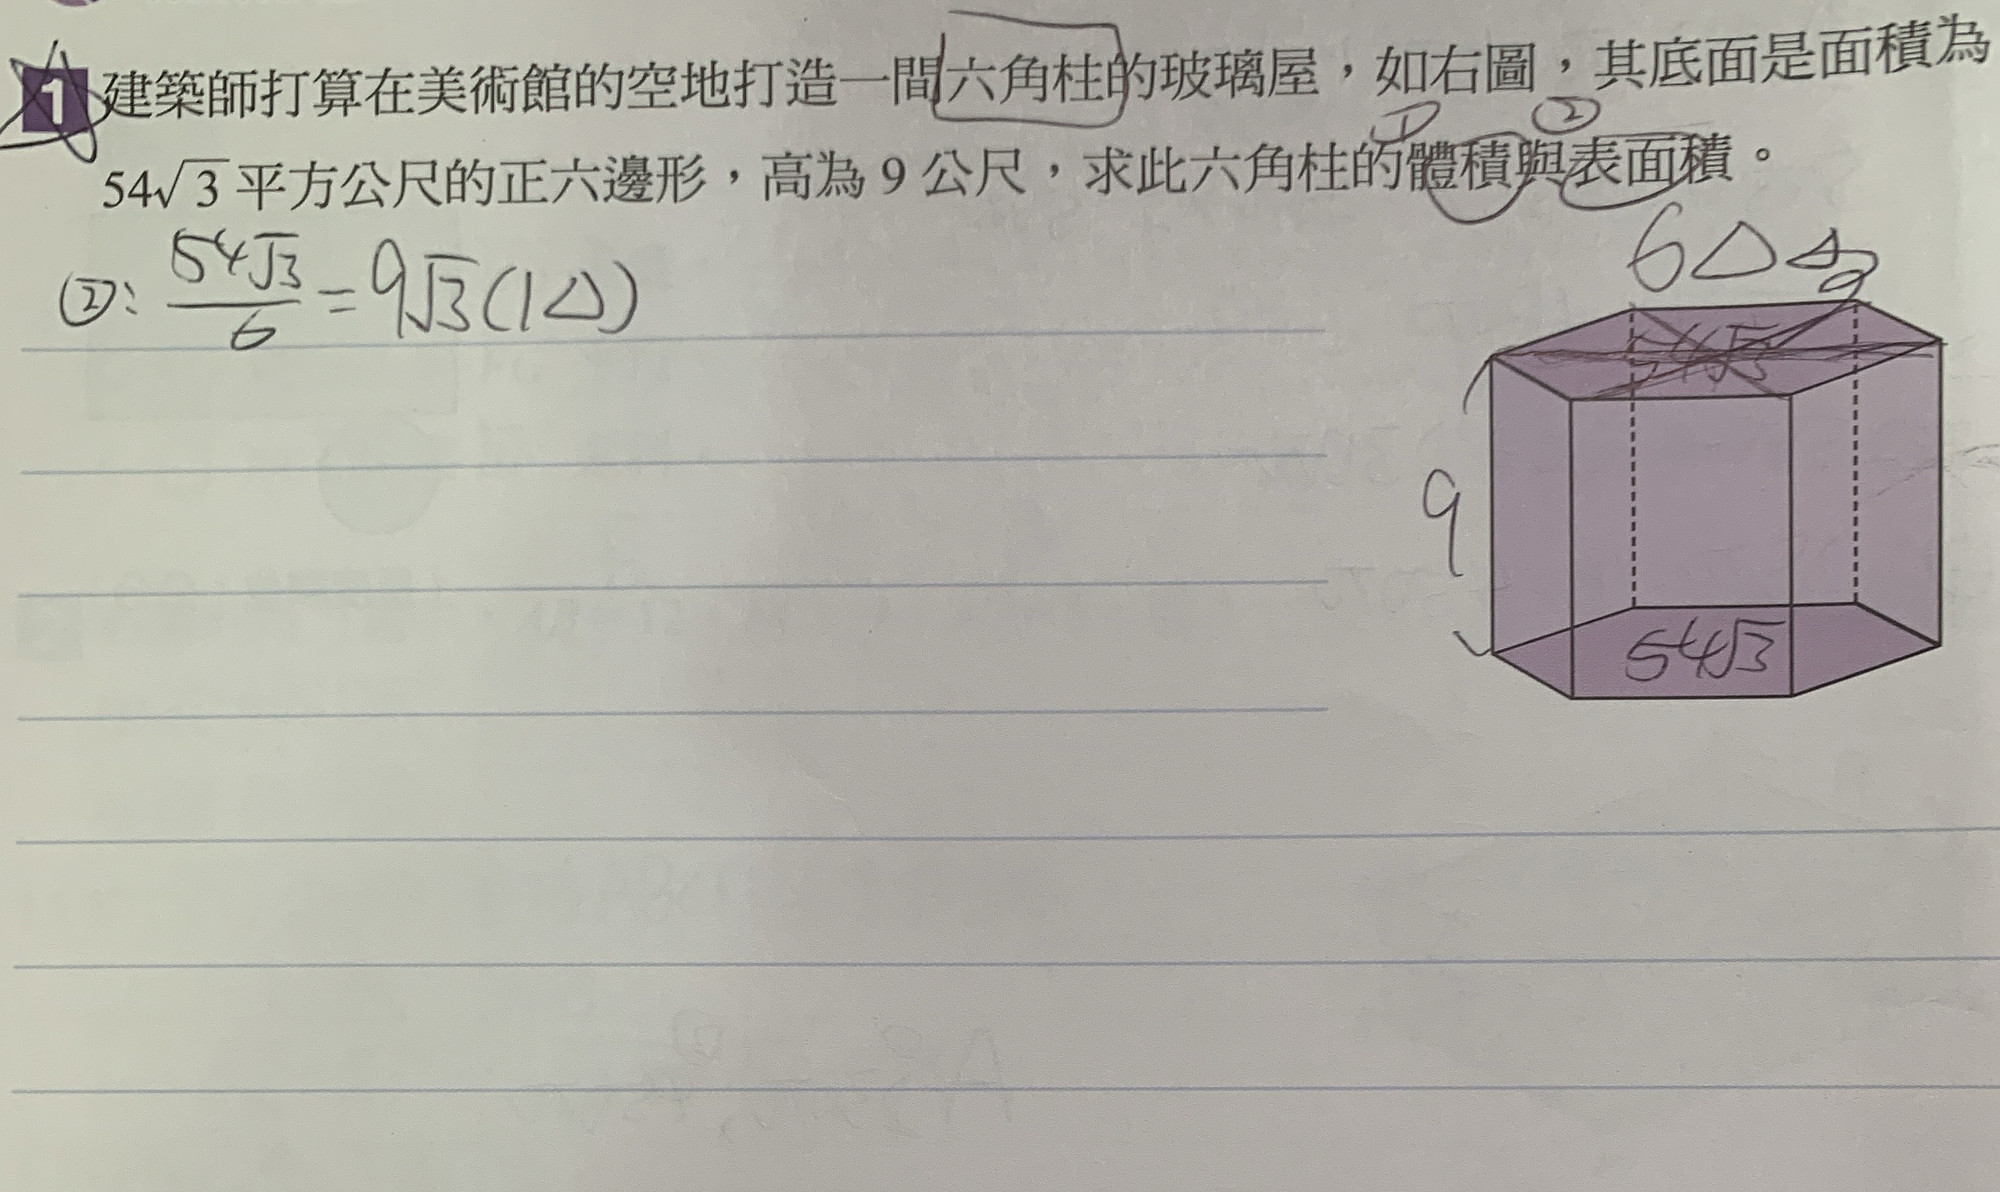 1 建築師打算在美術館的空地打造一間六角柱的玻璃屋，如右圖，其底面是面積為
① ②
54√3 平方公尺的正六邊形，高為 9 公尺，求此六角柱的體積與表面積。
②: 54√3/6 = 9√3 (1△)
6△
54√3
9
54√3